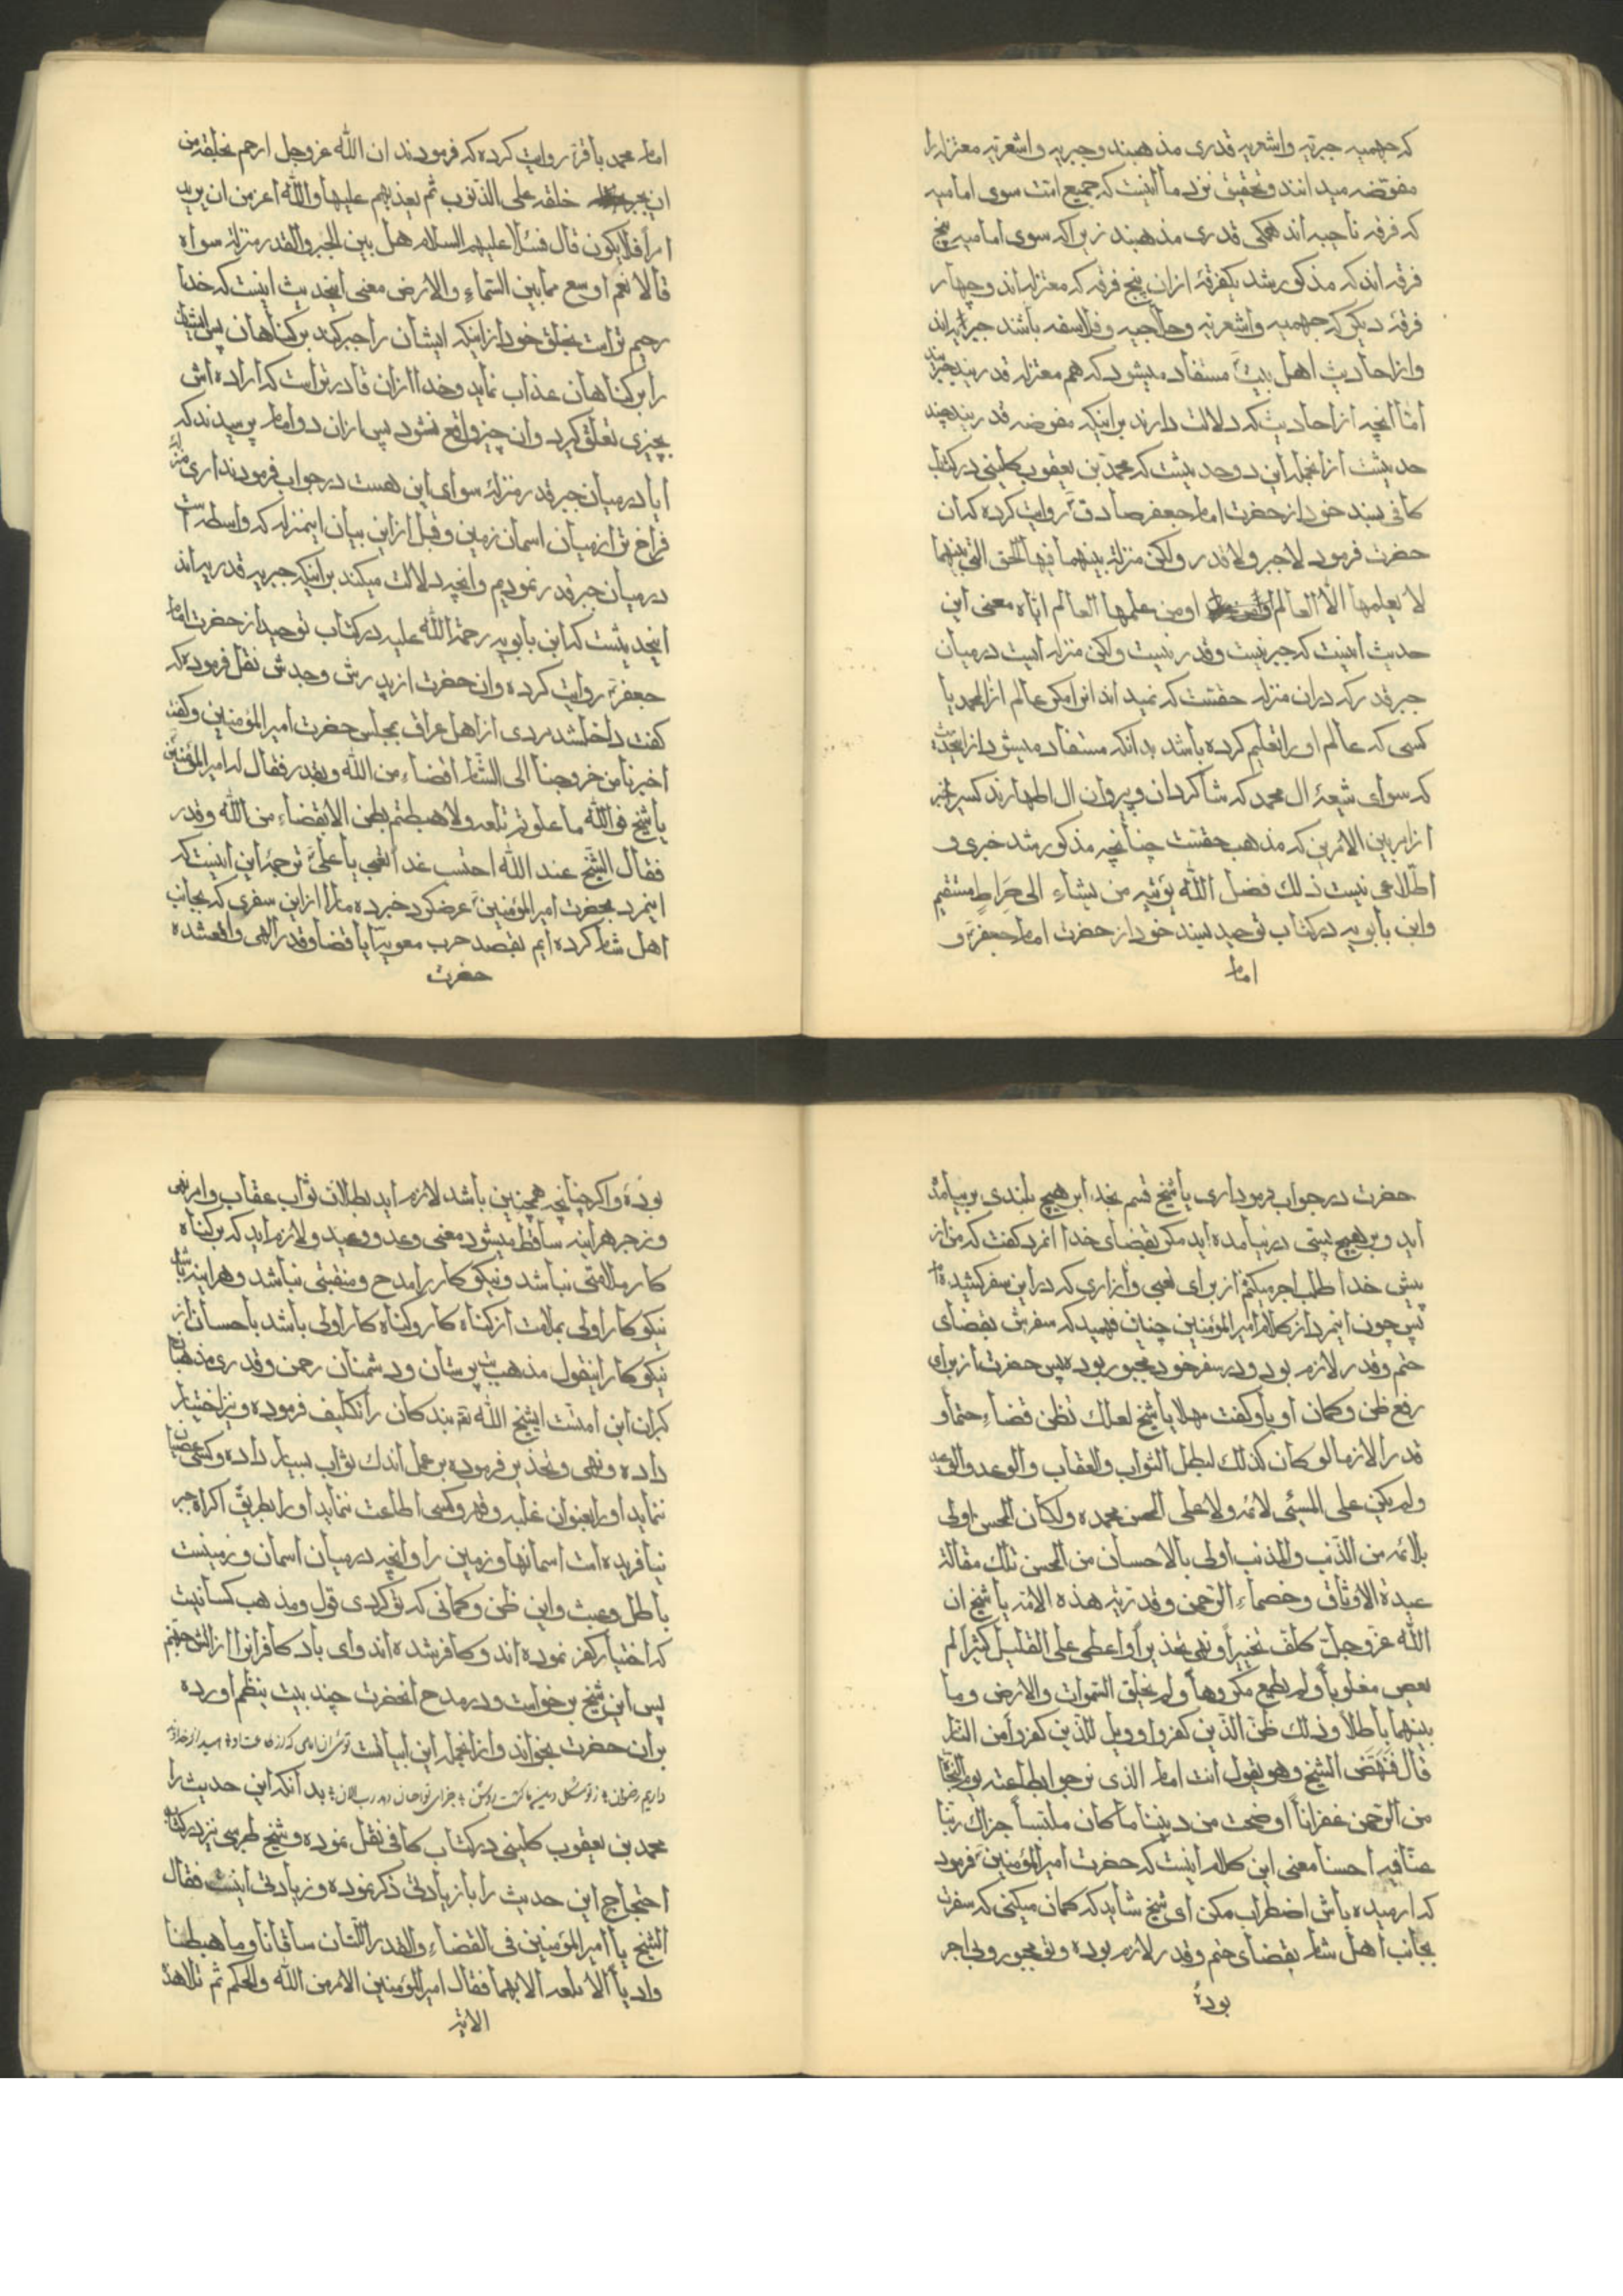 که جهمیه جبریه و اشعریه قدری مذهبند و جبریه و اشعریه معتزله را
مفوّضه میدانند و تحقیق نزد ما اینست که جمیع امّت سوی امامیه
که فرقه ناجیه اند همکی قدری مذهبند زیرا که سوی امامیه پنج
فرقه اند که مذکور شد یکفرقهٔ ازان پنج فرقه که معتزله اند و چهار
فرقهٔ دیکر که جهمیه و اشعریه و حلاجیه و فلاسفه باشند جبریه اند
و از احادیث اهل بیت مستفاد میشود که هم معتزله قدریند
امّا آنچه از احادیث که دلالت دارند بر اینکه مفوضه قدریند چند
حدیثست از انجمله این دو حدیثست که محمد بن یعقوب کلینی در کتاب
کافی بسند خود از حضرت امام جعفر صادق روایت کرده که ان
حضرت فرمود لا جبر و لا قدر ولکن منزلة بینهما فیها الحق التی بینهما
لا یعلمها الّا العالم او من علمها العالم ایّاه معنی این
حدیث اینست که جبر نیست و قدر نیست ولکن منزله ایست در میان
جبر قدر که دران منزله حقست که نمیداند انرا مکر عالم ال محمد یا
کسی که عالم او را تعلیم کرده باشد بدانکه مستفاد میشود از
که سوای شیعهٔ ال محمد که شاکردان و پیروان ال اطهارند کسیرا
از امر بین الامرین که مذهب حقست چنانچه مذکور شد خبری و
اطّلاعی نیست ذلك فضل الله یؤتیه من یشاء الی صراطٍ مستقیم
و ابن بابویه در کتاب توحید بسند خود از حضرت امام جعفر و
امام
امام محمد باقر روایت کرده که فرمودند ان الله عز وجل ارحم بخلقه من
ان یجبر خلقه علی الذنوب ثم یعذبهم علیها والله اعز من ان یرید
امراً فلا یکون قال فسئلا علیهم السلام هل بین الجبر والقدر منزلة سواه
قالا نعم اوسع مما بین السّماء والارض معنی اینحدیث اینست که خدا
رحیم تر است بخلق خود از اینکه ایشان را جبر کند بر کناهان پس ایشان
را بر کناهان عذاب نماید و خدا ازان قادر تر است که اراده اش
بچیزی تعلّق کیرد و ان چیز واقع نشود پس ازان دو امام پرسیدند که
ایا در میان جبر قدر منزله سوای این هست در جواب فرمودند اری
فراخ تر از میان اسمان زمین و قبل ازین بیان اینمنزله که واسطه است
در میان جبر قدر نمودیم و انچه دلالت میکند بر اینکه جبریه قدریه اند
اینحدیثست که ابن بابویه رحمة الله علیه در کتاب توحید از حضرت امام
جعفر روایت کرده و ان حضرت از پدرش و جدش نقل فرموده که
کفت داخلشد مردی از اهل عراق بمجلس حضرت امیر المؤمنین و کفت
اخبرنا من خروجنا الی الشام اقضاء من الله و بقدر فقال له امیر المؤمنین
یا شیخ فوالله ما علوتم تلعه ولا هبطتم بطن الا بقضاء من الله وقدر
فقال الشیخ عند الله احتسب عنائی یا علی ترجمهٔ این اینست که
اینمرد بحضرت امیر المؤمنین عرضکرد خبر ده مارا ازین سفری که بجانب
اهل شام کرده ایم بقصد حرب معویه ایا قضا و قدر الهی واقعشده
حضرت
حضرت در جواب فرمود اری یا شیخ قسم بخدا بر هیچ بلندی بر نیامده
اید و بر هیچ پستی در نیامده اید مکر بقضای خدا انمرد کفت که من از
پیش خدا طلب اجر میکنم از برای تعبی و ازاری که در این سفر کشیده ام
پس چون اینمرد از کلام امیر المؤمنین چنان فهمید که سفرش بقضای
حتم و قدر لازم بود و در سفر خود مجبور بوده پس حضرت از برای
رفع ظن و کمان او باو کفت مهلا یا شیخ لعلك تظن قضاء حتما و
قدرا لازما لو کان کذلك لبطل الثواب والعقاب والوعد والوعید
ولم یکن علی المسئ لائمه ولا علی المحسن محمده ولکان المحسن اولی
بلائمه من الذّنب والمذنب اولی بالاحسان من المحسن تلك مقالة
عبدة الاوثان وخصماء الرّحمن وقدریّه هذه الامّه یا شیخ ان
الله عزّ وجلّ کلف تخییراً و نهی تحذیراً و اعطی علی القلیل کثیرا لم
یعص مغلوباً ولم یطع مکروهاً ولم یخلق السّموات والارض وما
بینهما باطلاً وذلك ظنّ الذین کفروا وویل للذین کفروا من النار
قال فنهض الشیخ وهو یقول انت امام الذی نرجو بطاعته یوم النجاة
من الرّحمن غفراناً اوضحت من دیننا ما کان ملتبساً جزاك ربّنا
عنّا فیه احسنا معنی این کلام اینست که حضرت امیر المؤمنین فرمود
که ارمیده باش اضطراب مکن ای شیخ شاید که کمان میکنی که سفرت
بجانب اهل شام بقضای حتم و قدر لازم بوده و تو مجبور و بی اجر
بوده
بوده و اکر چنانچه همچنین باشد لازم اید بطلان ثواب عقاب و امر نهی
و زجر هر اینه ساقط میشود معنی وعد و وعید و لازم اید که بر کناه
کار ملامتی نباشد و نیکو کار را مدح و منقبتی نباشد و هر اینه باشد
نیکو کار اولی بملامت از کناه کار و کناه کار اولی باشد باحسان از
نیکو کار اینقول مذهب بت پرستان و دشمنان رحمن و قدری مذهبان
کبران این امتست ایشیخ الله تع بندکان را تکلیف فرموده و نیز اختیار
داده و نهی و تحذیر فرموده بر عمل اندك ثواب بسیار داده و کسی عصیان
ننماید او را بعنوان غلبه و قهر و کسی اطاعت ننماید او را بطریق اکراه جبر
نیافریده است اسمانها و زمین را و انچه در میان اسمان و زمینست
باطل و عبث و این ظن و کمانی که تو کردی قول و مذهب کسانیست
که اختیار کفر نموده اند و کافر شده اند وای باد کافرانرا از اتش جهنم
پس این شیخ برخواست و در مدح انحضرت چند بیت بنظم اورده
بران حضرت بخواند و از انجمله این ابیاتست
بدانکه این حدیث را
محمد بن یعقوب کلینی در کتاب کافی نقل نموده و شیخ طبرسی نیز در کتاب
احتجاج این حدیث را با زیادتی ذکر نموده و زیادتی اینست فقال
الشیخ یا امیر المؤمنین فی القضاء والقدر اللّتان ساقانا وما هبطنا
وادیاً الا تلعه الا بهما فقال امیر المؤمنین الامر من الله والحکم ثم تلا هذه
الایة